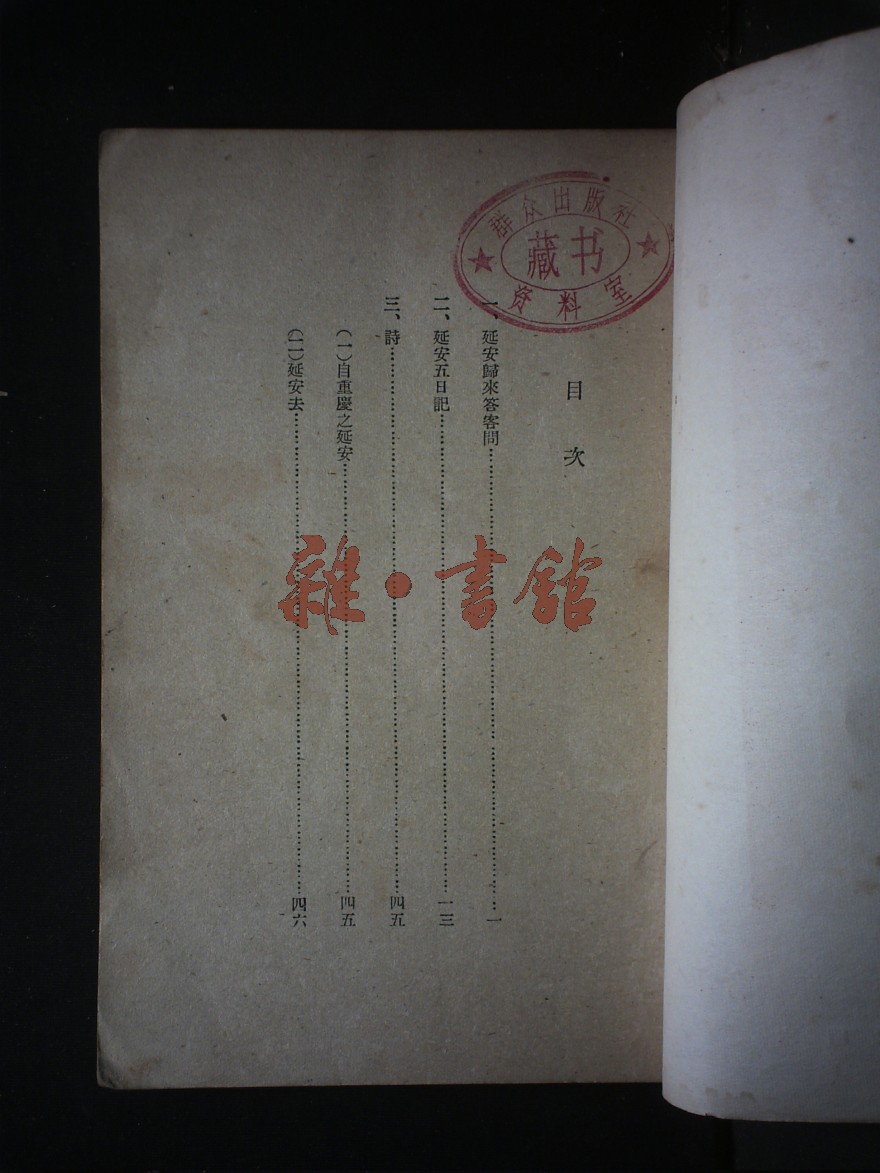 目次
一、延安歸來答客問……一
二、延安五日記……一三
三、詩……四五
(一)自重慶之延安……四五
(二)延安去……四六
群众出版社
藏书
资料室
雜·書館